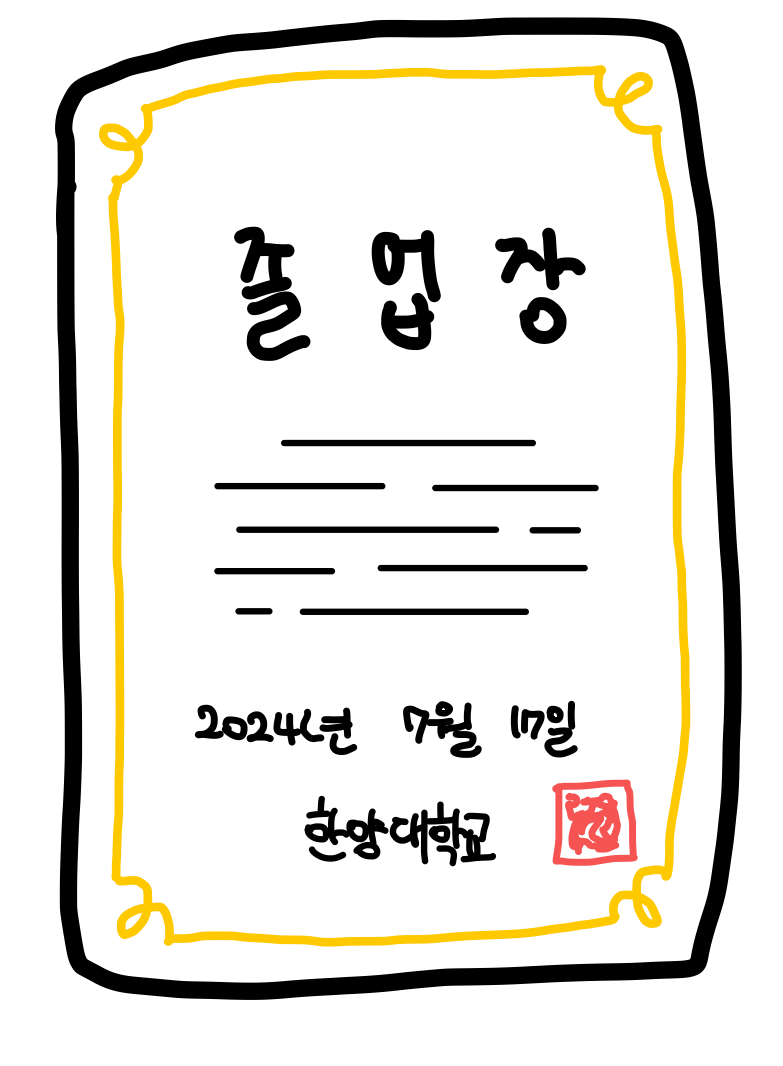 졸 업 장
2024년 7월 17일
한양대학교